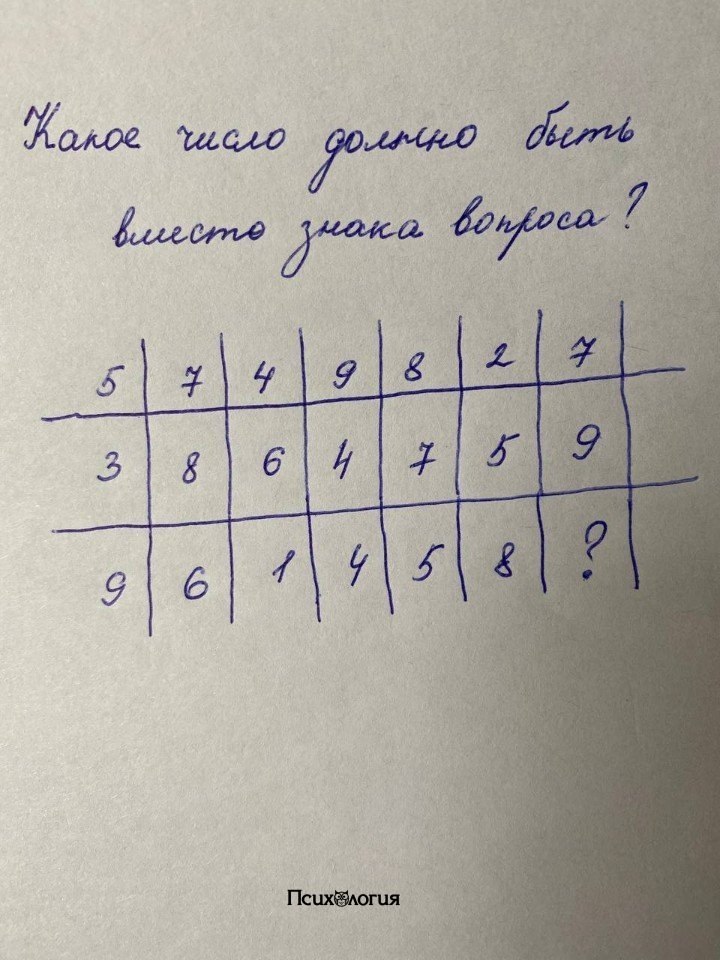 Какое число должно быть
вместо знака вопроса?
5 7 4 9 8 2 7
3 8 6 4 7 5 9
9 6 1 4 5 8 ?
Психология